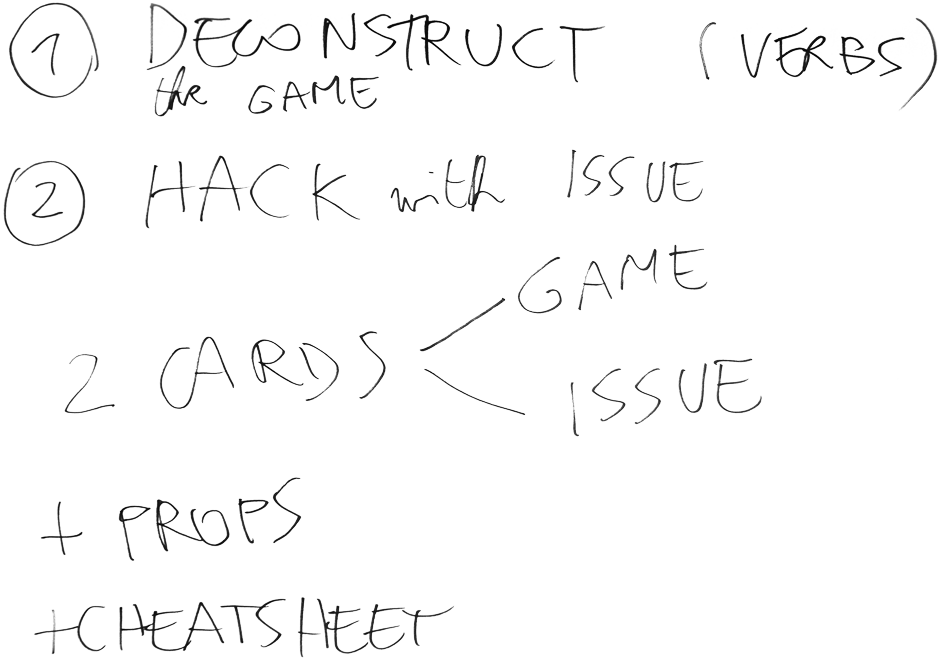 1 DECONSTRUCT (VERBS)
the GAME
2 HACK with ISSUE
GAME
2 CARDS
ISSUE
+ PROPS
+CHEATSHEET